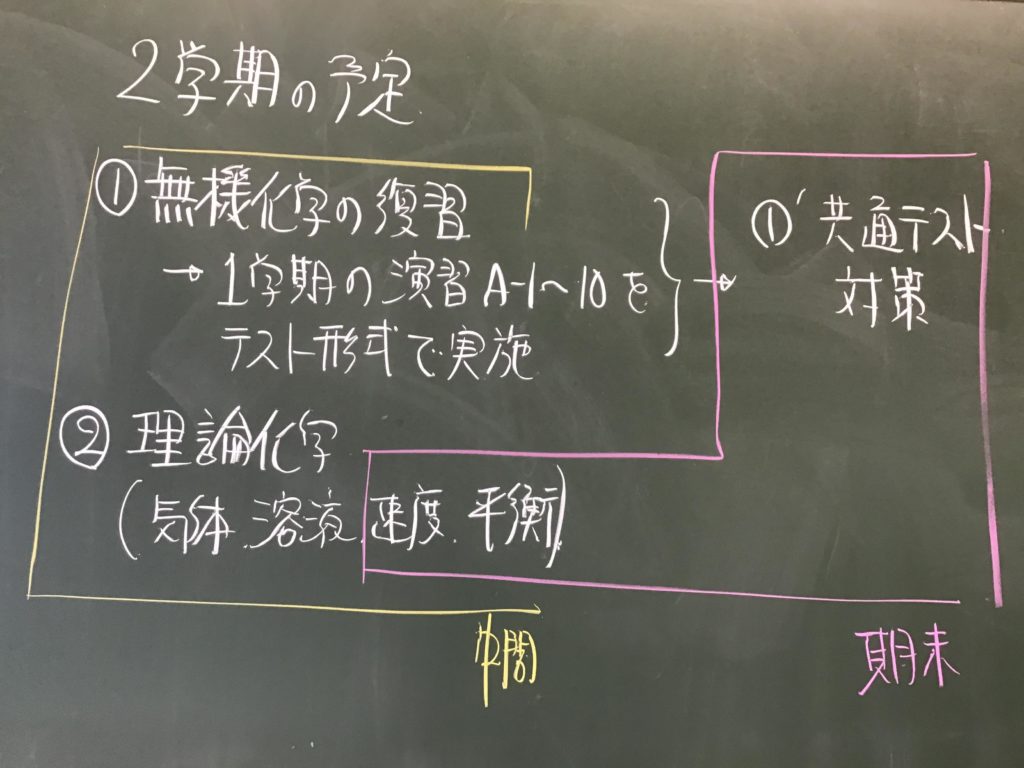 2学期の予定
① 無機化学の復習
→ 1学期の演習 A-1~10を
テスト形式で実施
② 理論化学
(気体、溶液、速度、平衡)
→ ①' 共通テスト
対策
中間
期末